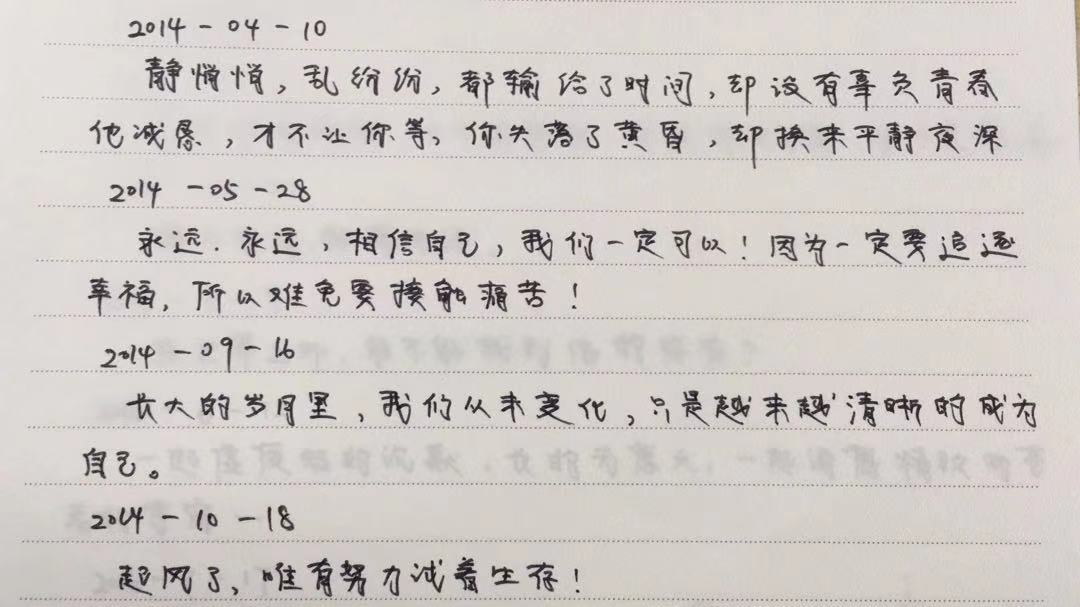 2014-04-10
静悄悄，乱纷纷，都输给了时间，却没有辜负青春
他减景，才不让你等，你失落了黄昏，却换来平静夜深
2014-05-28
永远．永远，相信自己，我们一定可以！因为一定要追逐
幸福，所以难免要接触痛苦！
2014-09-16
长大的岁月里，我们从未变化，只是越来越清晰的成为
自己。
2014-10-18
起风了，唯有努力试着生存！